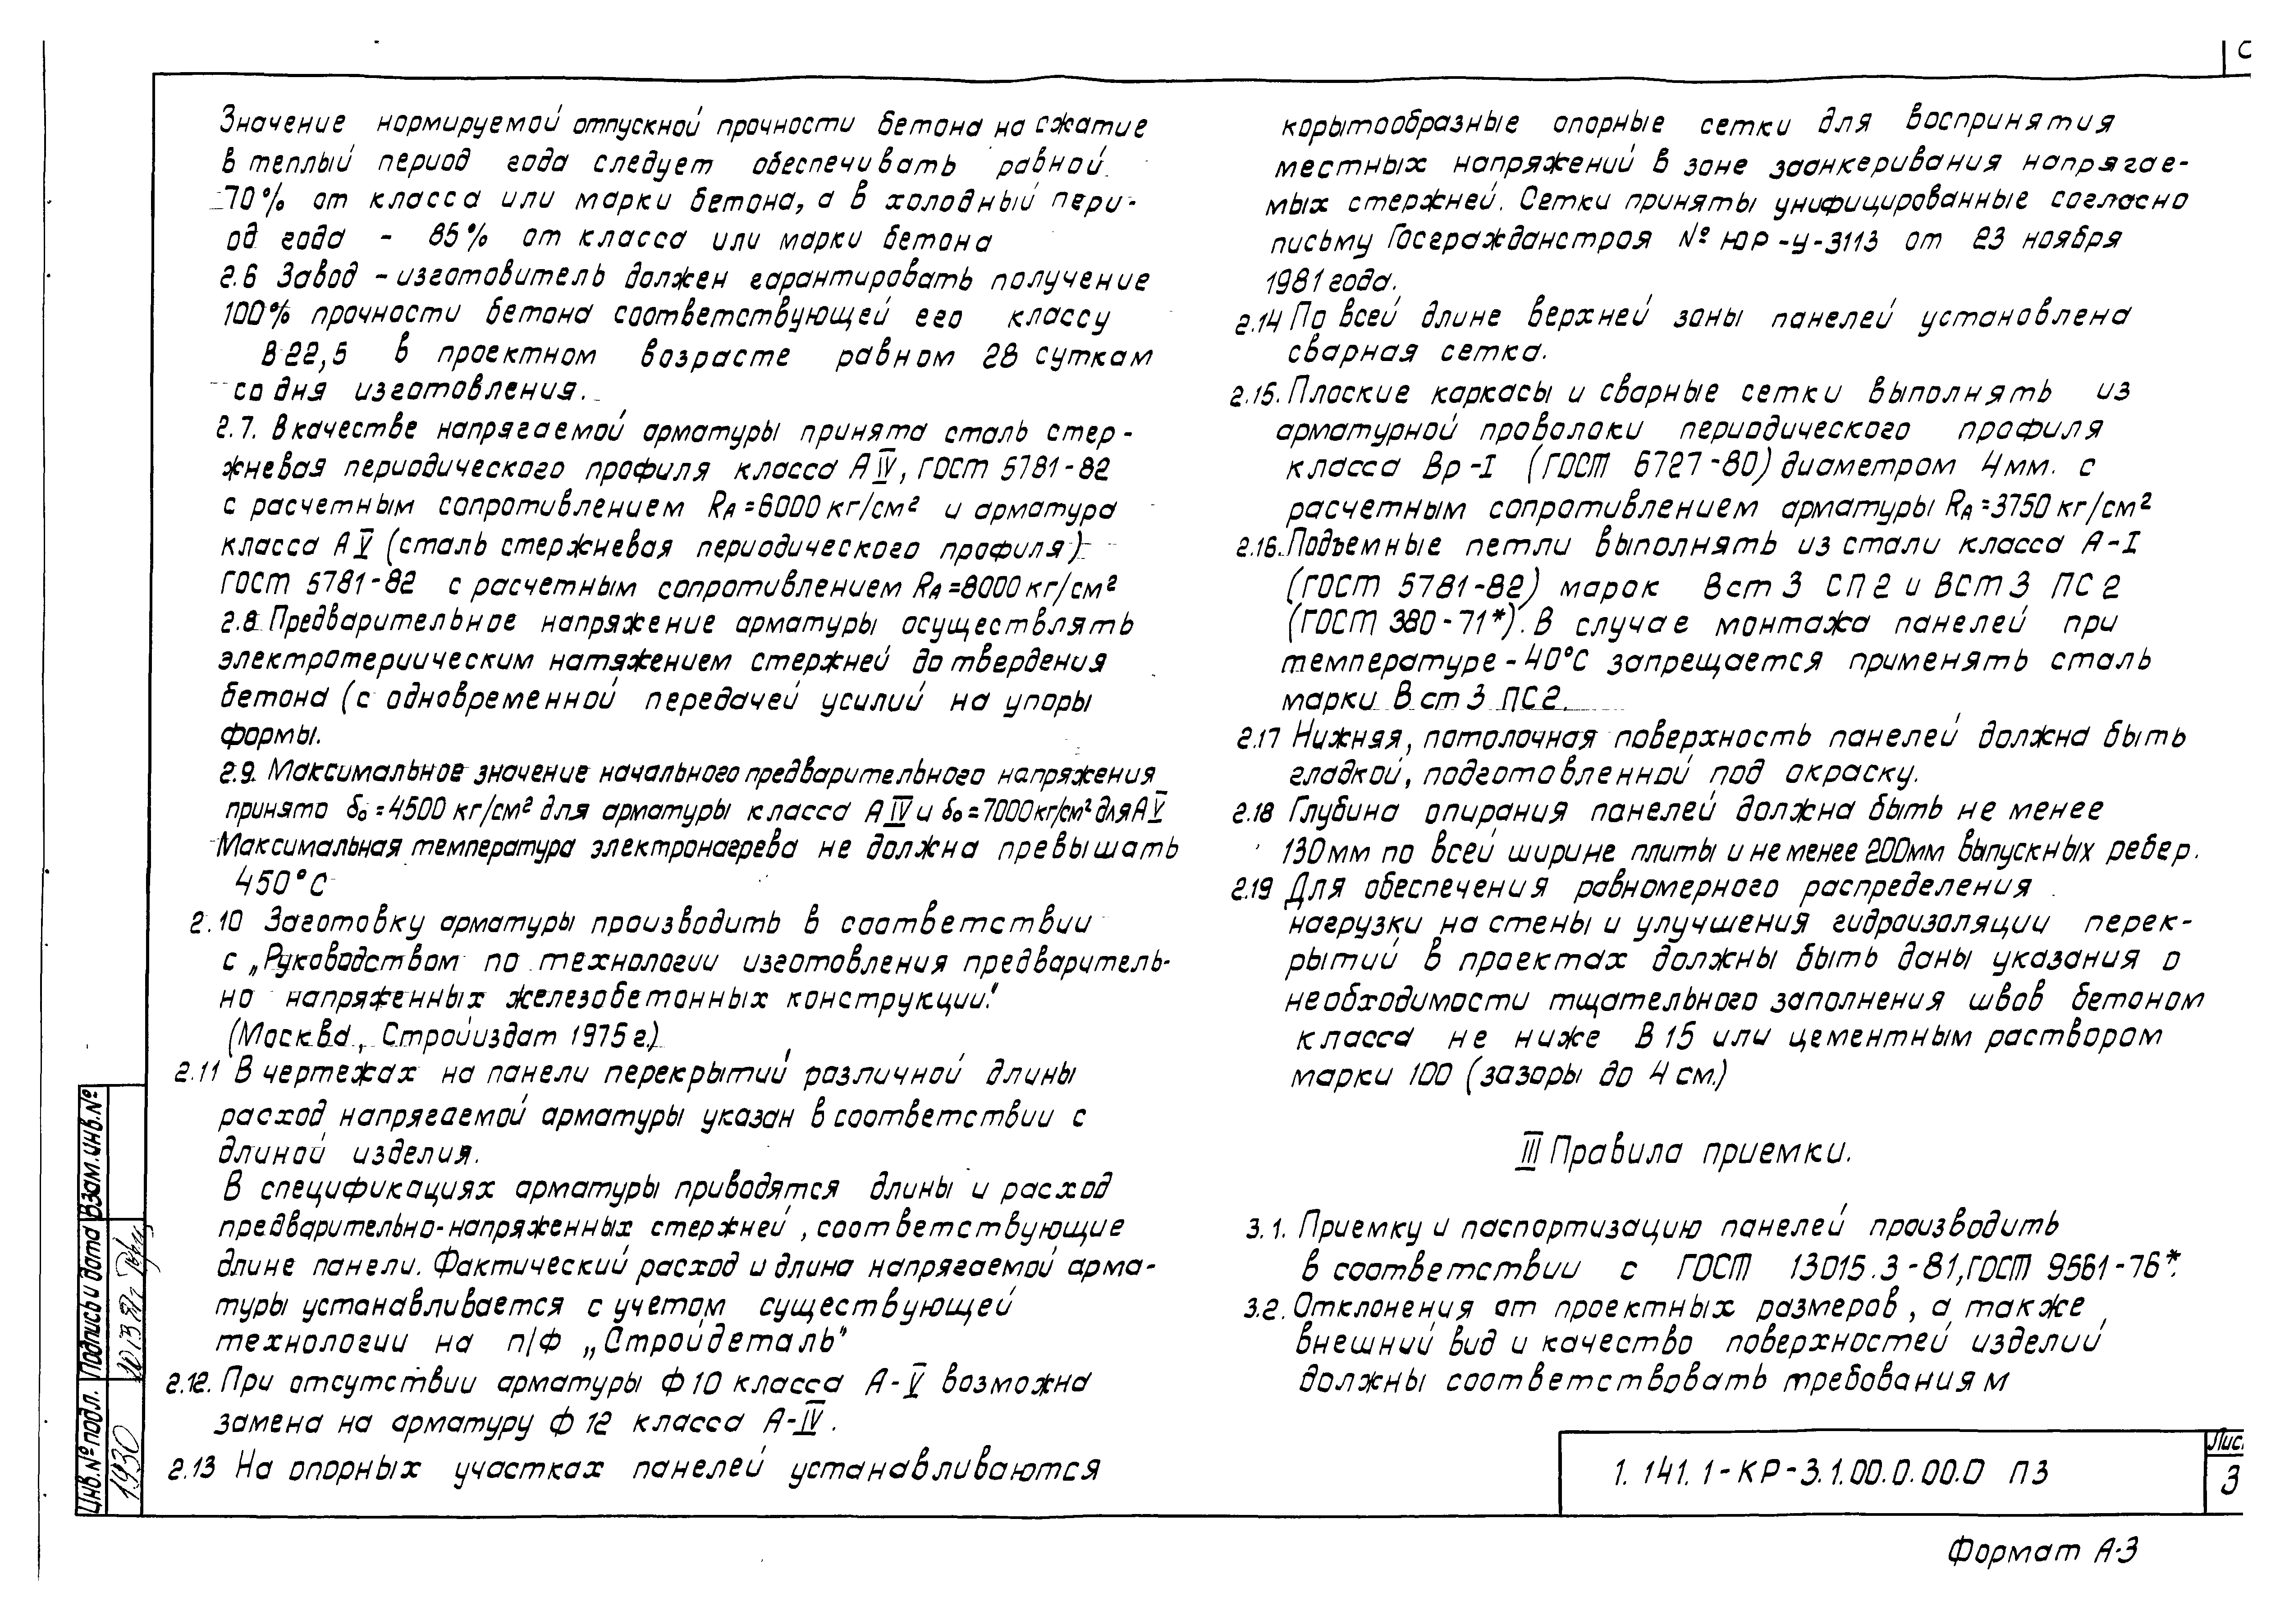 С
Значение нормируемой отпускной прочности бетона на сжатие
в теплый период года следует обеспечивать равной
70% от класса или марки бетона, а в холодный пери-
од года - 85% от класса или марки бетона
2.6 Завод - изготовитель должен гарантировать получение
100% прочности бетона соответствующей его классу
В 22,5 в проектном возрасте равном 28 суткам
со дня изготовления.
2.7. В качестве напрягаемой арматуры принята сталь стер-
жневая периодического профиля класса А IV, ГОСТ 5781-82
с расчетным сопротивлением RА=6000 кг/см² и арматура
класса А V (сталь стержневая периодического профиля)
ГОСТ 5781-82 с расчетным сопротивлением RА=8000 кг/см²
2.8 Предварительное напряжение арматуры осуществлять
электротериическим натяжением стержней до твердения
бетона (с одновременной передачей усилий на упоры
формы.
2.9. Максимальное значение начального предварительного напряжения
принято δ₀=4500 кг/см² для арматуры класса А IV и δ₀=7000кг/см² для А V
Максимальная температура электронагрева не должна превышать
450°С
2.10 Заготовку арматуры производить в соответствии
с „Руководством по технологии изготовления предваритель-
но напряженных железобетонных конструкции".
(Москва, Стройиздат 1975 г.)
2.11 В чертежах на панели перекрытий различной длины
расход напрягаемой арматуры указан в соответствии с
длиной изделия.
В спецификациях арматуры приводятся длины и расход
предварительно-напряженных стержней, соответствующие
длине панели. Фактический расход и длина напрягаемой арма-
туры устанавливается с учетом существующей
технологии на п/ф „Стройдеталь"
2.12. При отсутствии арматуры Ф 10 класса А-V возможна
замена на арматуру Ф 12 класса А-IV.
2.13 На опорных участках панелей устанавливаются
корытообразные опорные сетки для воспринятия
местных напряжений в зоне заанкеривания напрягае-
мых стержней. Сетки приняты унифицированные согласно
письму Госгражданстроя № ЮР-У-3113 от 23 ноября
1981 года.
2.14 По всей длине верхней зоны панелей установлена
сварная сетка.
2.15. Плоские каркасы и сварные сетки выполнять из
арматурной проволоки периодического профиля
класса Вр-I (ГОСТ 6727-80) диаметром 4мм. с
расчетным сопротивлением арматуры RА=3750 кг/см²
2.16. Подъемные петли выполнять из стали класса А-I
(ГОСТ 5781-82) марок Вст 3 СП 2 и ВСТ 3 ПС 2
(ГОСТ 380-71*). В случае монтажа панелей при
температуре -40°С запрещается применять сталь
марки Вст 3 ПС2.
2.17 Нижняя, потолочная поверхность панелей должна быть
гладкой, подготовленной под окраску.
2.18 Глубина опирания панелей должна быть не менее
130мм по всей ширине плиты и не менее 200мм выпускных ребер.
2.19 Для обеспечения равномерного распределения
нагрузки на стены и улучшения гидроизоляции перек-
рытий в проектах должны быть даны указания о
необходимости тщательного заполнения швов бетоном
класса не ниже В 15 или цементным раствором
марки 100 (зазоры до 4 см.)
III Правила приемки.
3.1. Приемку и паспортизацию панелей производить
в соответствии с ГОСТ 13015.3-81, ГОСТ 9561-76*.
3.2. Отклонения от проектных размеров, а также
внешний вид и качество поверхностей изделий
должны соответствовать требованиям
Инв. № подл. Подпись и дата Взам. инв. №
1930
1.141.1-КР-3.1.00.0.00.0 ПЗ
Лис
3
Формат А-3